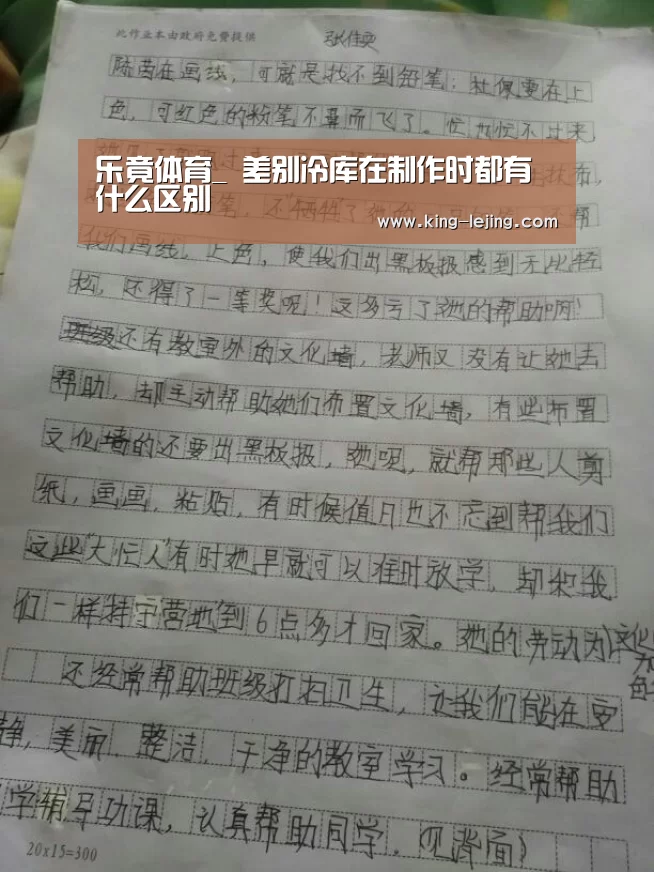 此作业本由政府免费提供
陈茵在画线，可就是找不到铅笔；杜保要在上
色，可红色的粉笔不翼而飞了。忙加忙不过来
乐竟体育_ 差别冷库在制作时都有
什么区别
www.king-lejing.com
我们画线，上色，使我们出黑板报感到无比轻
松，还得了一等奖呢！这多亏了她的帮助啊！
班级还有教室外的文化墙，老师又没有让她去
帮助，却主动帮助她们布置文化墙，有些布置
文化墙的还要出黑板报，她呢，就帮那些人剪
纸，画画，粘贴，有时候值日也不忘到帮我们
这些“大忙人”有时她早就可以准时放学，却和我
们一样“特宇营地”到6点多才回家。她的劳动为
还经常帮助班级打扫卫生，让我们能在更
静，美丽、整洁、干净的教室学习。经常帮助
学辅导功课，认真帮助同学。（见背面）
20x15=300